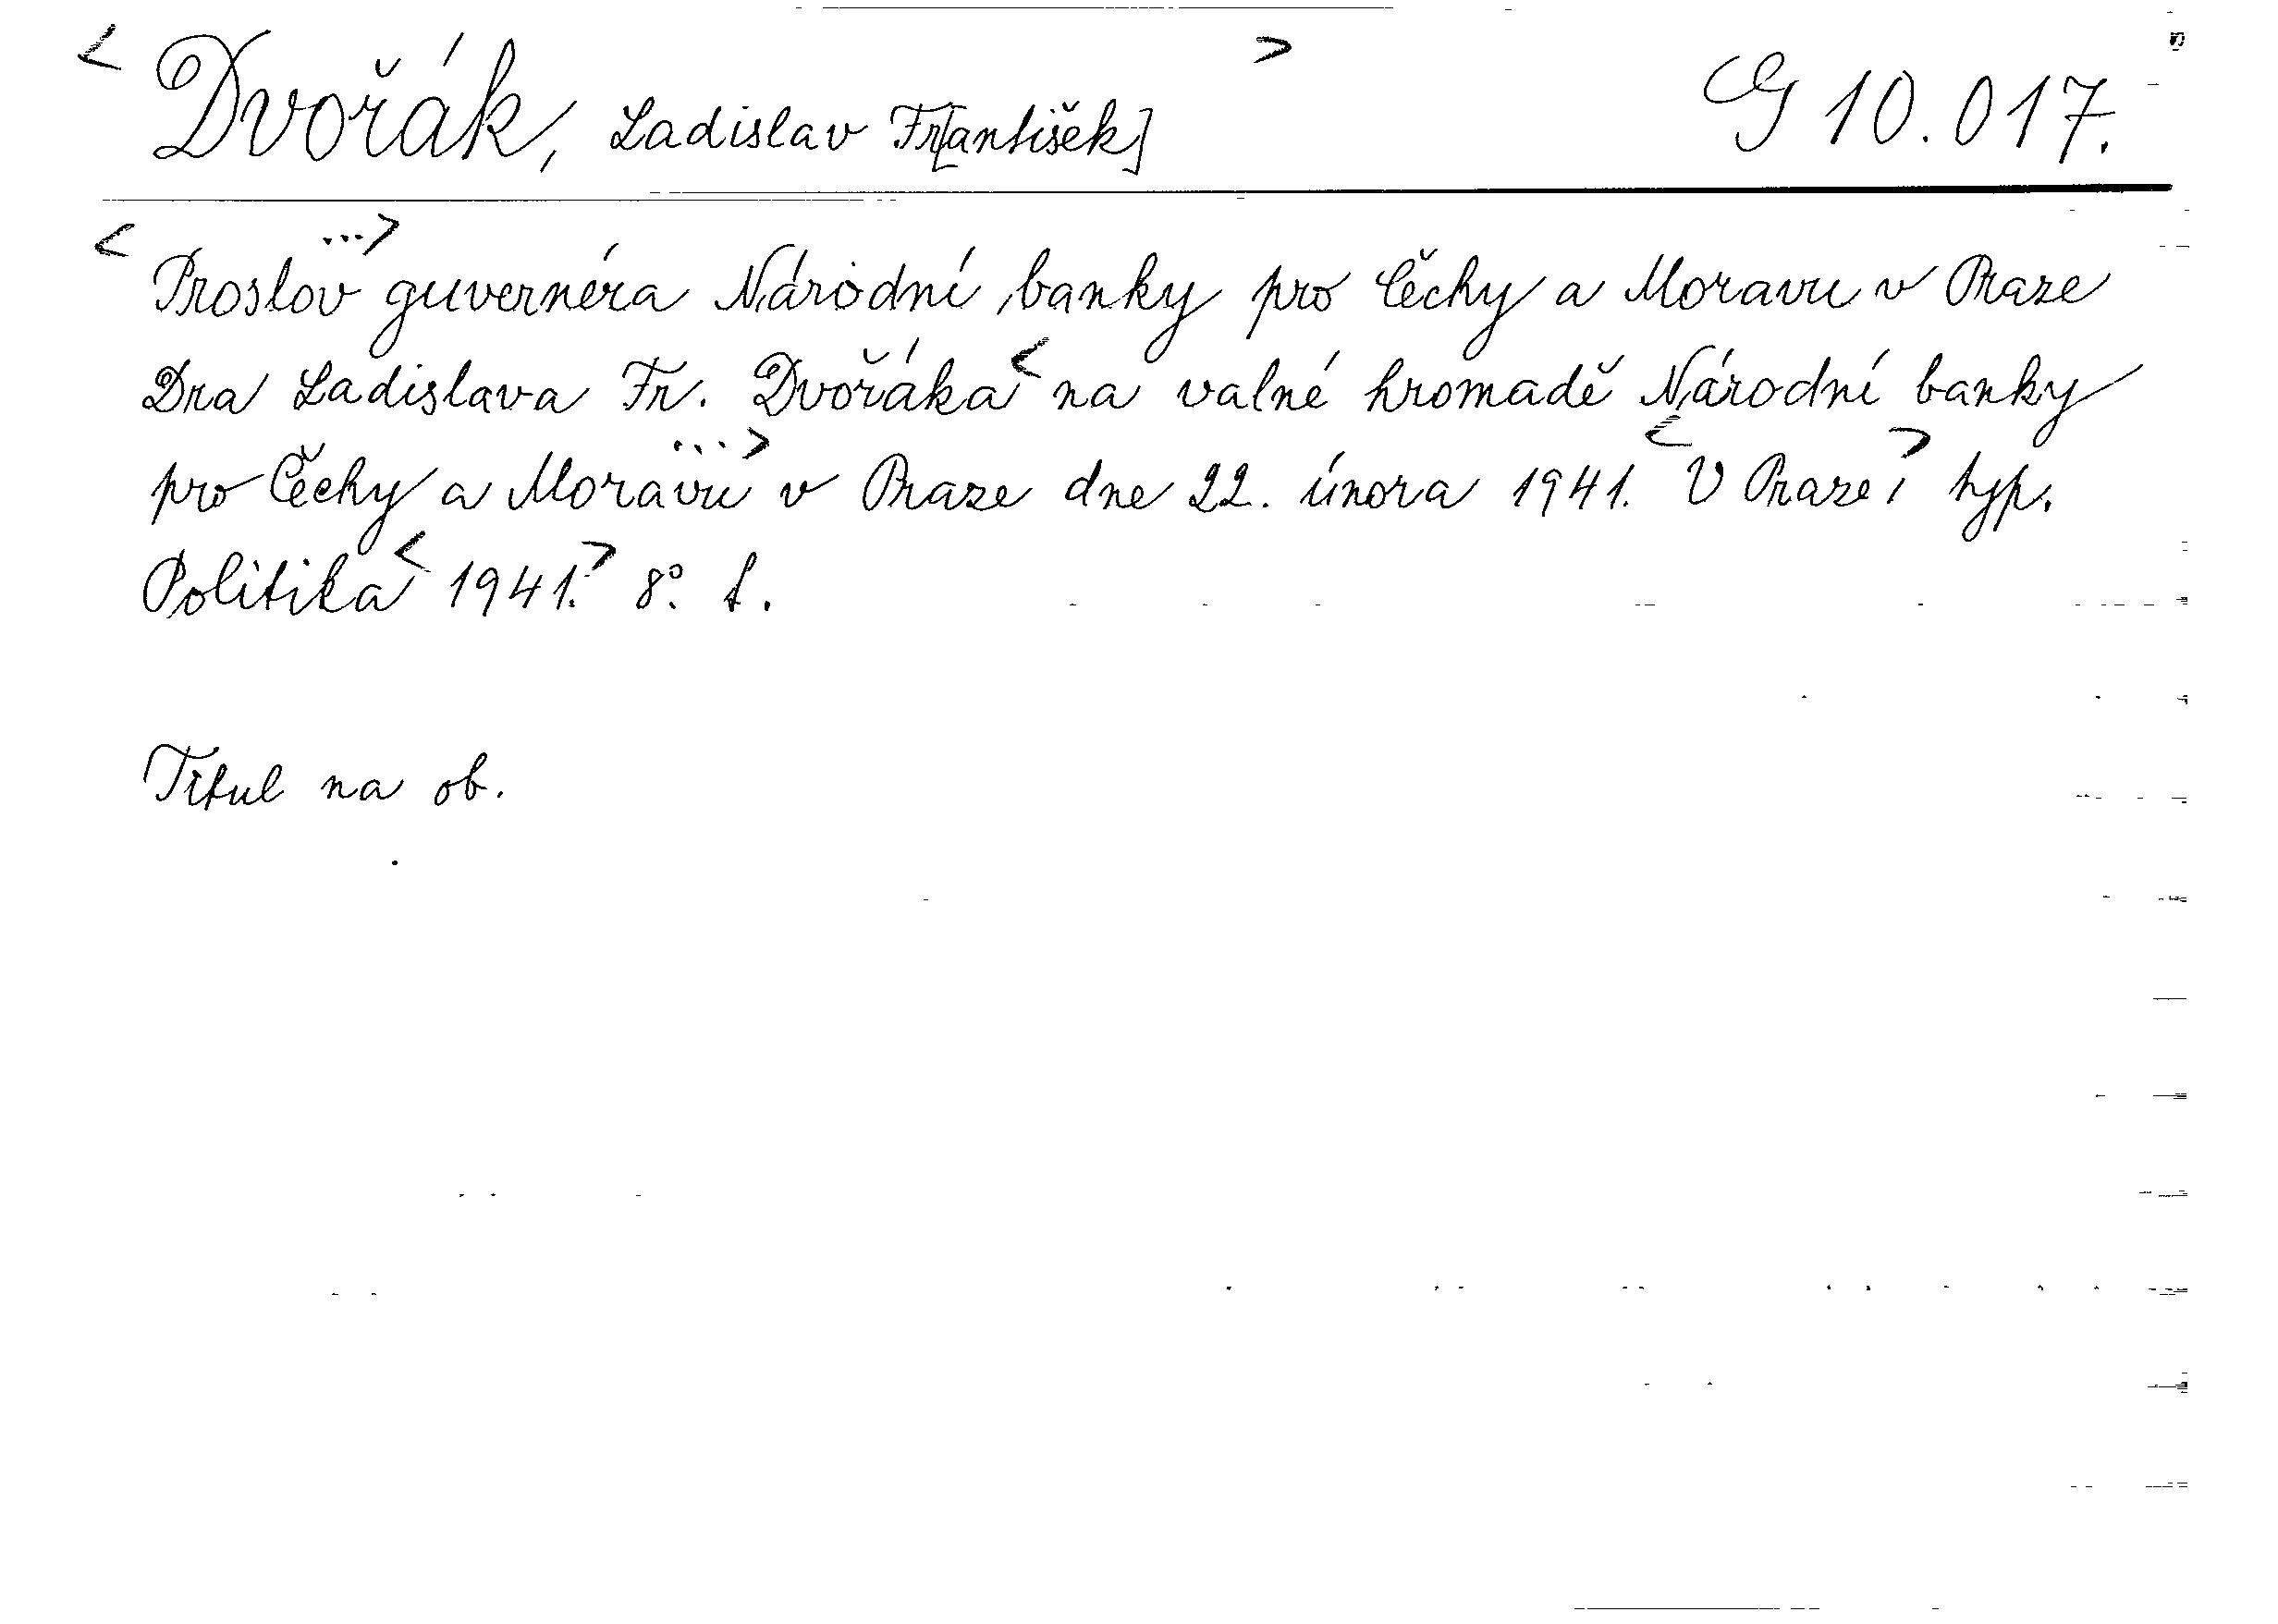 < Dvořák, Ladislav Fr[antišek] > G 10.017.
< Proslov ...> guvernéra Národní banky pro Čechy a Moravu v Praze
Dra Ladislava Fr. Dvořáka < na valné hromadě Národní banky
pro Čechy a Moravu ...> v Praze dne 22. února 1941. < V Praze, > typ.
Politika < 1941. > 8°.
Titul na ob.